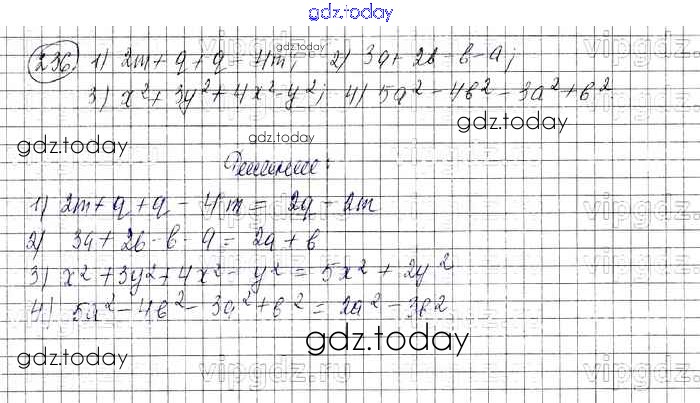 gdz.today
236. 1) 2m + q + q - 4m; 2) 3a + 2b - b - a;
gdz.today
3) x² + 3y² + 4x² - y²; 4) 5a² - 4b² - 3a² + b²
gdz.today
gdz.today gdz.today
Решение:
1) 2m + q + q - 4m = 2q - 2m
2) 3a + 2b - b - a = 2a + b
3) x² + 3y² + 4x² - y² = 5x² + 2y²
4) 5a² - 4b² - 3a² + b² = 2a² - 3b²
gdz.today gdz.today
vipgdz.ru